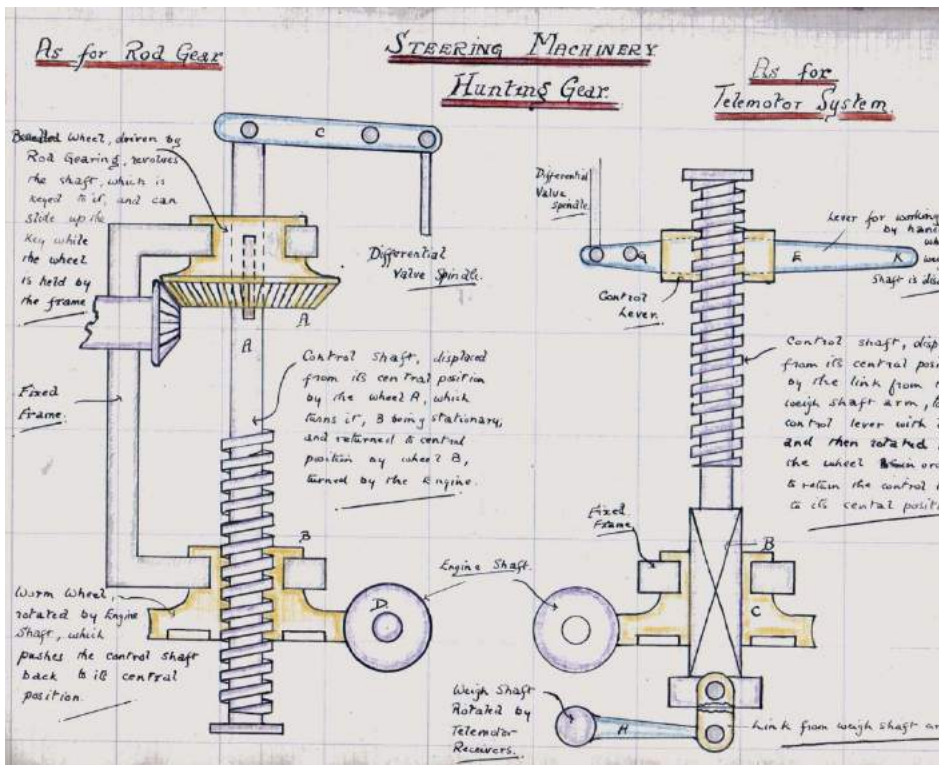 As for Rod Gear
STEERING MACHINERY
Hunting Gear.
As for
Telemotor System.
Bevelled Wheel, driven by
Rod Gearing, revolves
the shaft, which is
keyed to it, and can
slide up the
Key while
the wheel
is held by
the frame
C
Differential
Valve Spindle.
A
A
Fixed
Frame.
Control shaft, displaced
from its central position
by the wheel A, which
turns it, B being stationary,
and returned to central
position by wheel B,
turned by the Engine.
B
Worm Wheel,
rotated by Engine
Shaft, which
pushes the control shaft
back to its central
position.
D.
Engine Shaft.
Differential
Valve
spindle.
G
E
K
Lever for working
by hand
wh
we
Shaft is dis
Control
Lever.
Control shaft, disp
from its central posi
by the link from
weigh shaft arm, t
control lever with
and then rotated
the wheel in or
to return the control
to its cental posit
Fixed
Frame
B
C
Weigh Shaft
Rotated by
Telemotor
Receivers.
H
Link from weigh shaft ar